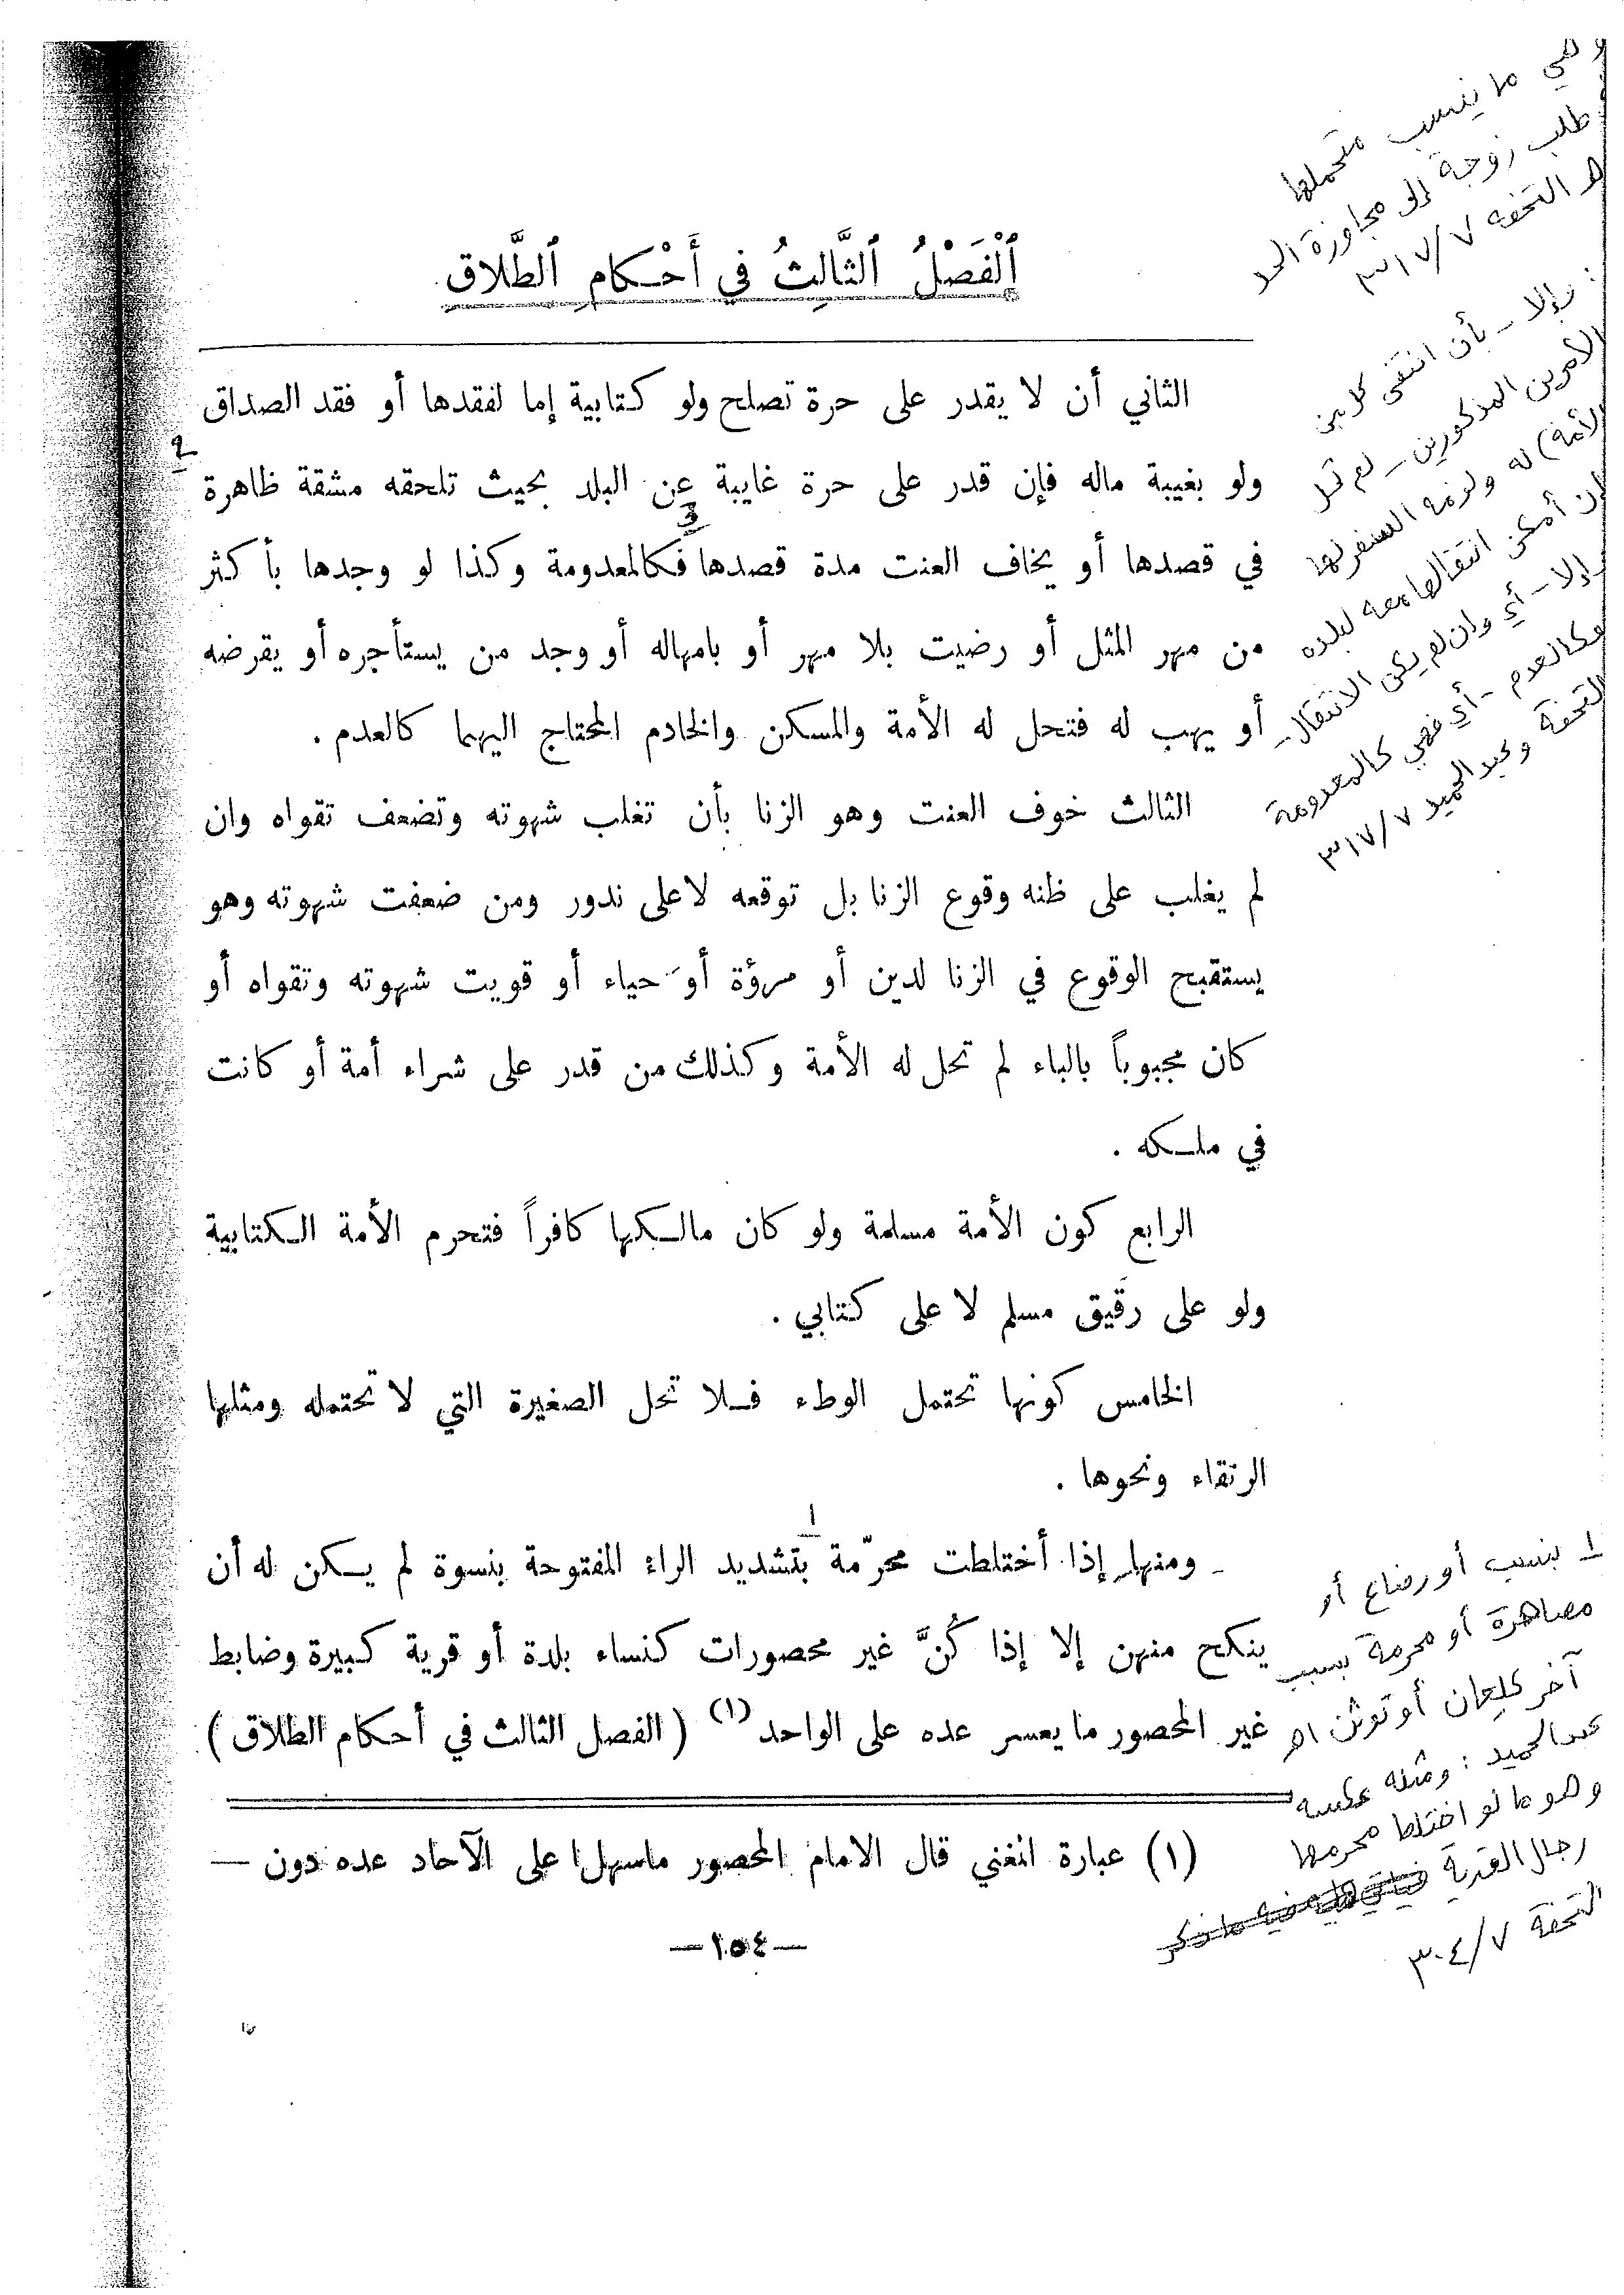 ٱلْفَصْلُ ٱلثَّالِثُ في أَحْكامِ ٱلطَّلاق
الثاني أن لا يقدر على حرة تصلح ولو كتابية إما لفقدها أو فقد الصداق
ولو بغيبة ماله فإن قدر على حرة غايبة عن البلد بحيث تلحقه مشقة ظاهرة
في قصدها أو يخاف العنت مدة قصدها فكالمعدومة وكذا لو وجدها بأكثر
من مهر المثل أو رضيت بلا مهر أو بامهاله أو وجد من يستأجره أو يقرضه
أو يهب له فتحل له الأمة والمسكن والخادم المحتاج اليهما كالعدم .
الثالث خوف العنت وهو الزنا بأن تغلب شهوته وتضعف تقواه وان
لم يغلب على ظنه وقوع الزنا بل توقعه لا على ندور ومن ضعفت شهوته وهو
يستقبح الوقوع في الزنا لدين أو مرؤة أو حياء أو قويت شهوته وتقواه أو
كان مجبوباً بالباء لم تحل له الأمة وكذلك من قدر على شراء أمة أو كانت
في ملكه .
الرابع كون الأمة مسلمة ولو كان مالكها كافراً فتحرم الأمة الكتابية
ولو على رقيق مسلم لا على كتابي .
الخامس كونها تحتمل الوطء فلا تحل الصغيرة التي لا تحتمله ومثلها
الرتقاء ونحوها .
ومنها إذا أختلطت محرّمة بتشديد الراء المفتوحة بنسوة لم يكن له أن
ينكح منهن إلا إذا كُنَّ غير محصورات كنساء بلدة أو قرية كبيرة وضابط
غير المحصور ما يعسر عده على الواحد (١) ( الفصل الثالث في أحكام الطلاق )
(١) عبارة المغني قال الامام المحصور ماسهل على الآحاد عده دون —
— ١٥٤ —
وهي ما ينسب متحملها
طلب زوجة إلى مجاوزة الحد
اهـ التحفه ٣١٧/٧
وإلا – بأن انتفى كل من
الأمرين المذكورين – لم تحل
(الأمة) له ولزمه السفر لها
إن أمكن انتقالها معه لبلده
وإلا – أي وان لم يمكن الانتقال –
فكالعدم – أي فهي كالمعدومة
التحفة وعبد الحميد ٣١٧/٧
١ بنسب أو رضاع أو
مصاهرة أو محرمة بسبب
آخر كلعان أو توثن اهـ
عبد الحميد : ومثله عكسه
وهو ما لو اختلط محرمها
رجال القرية
التحفة ٣٠٤/٧